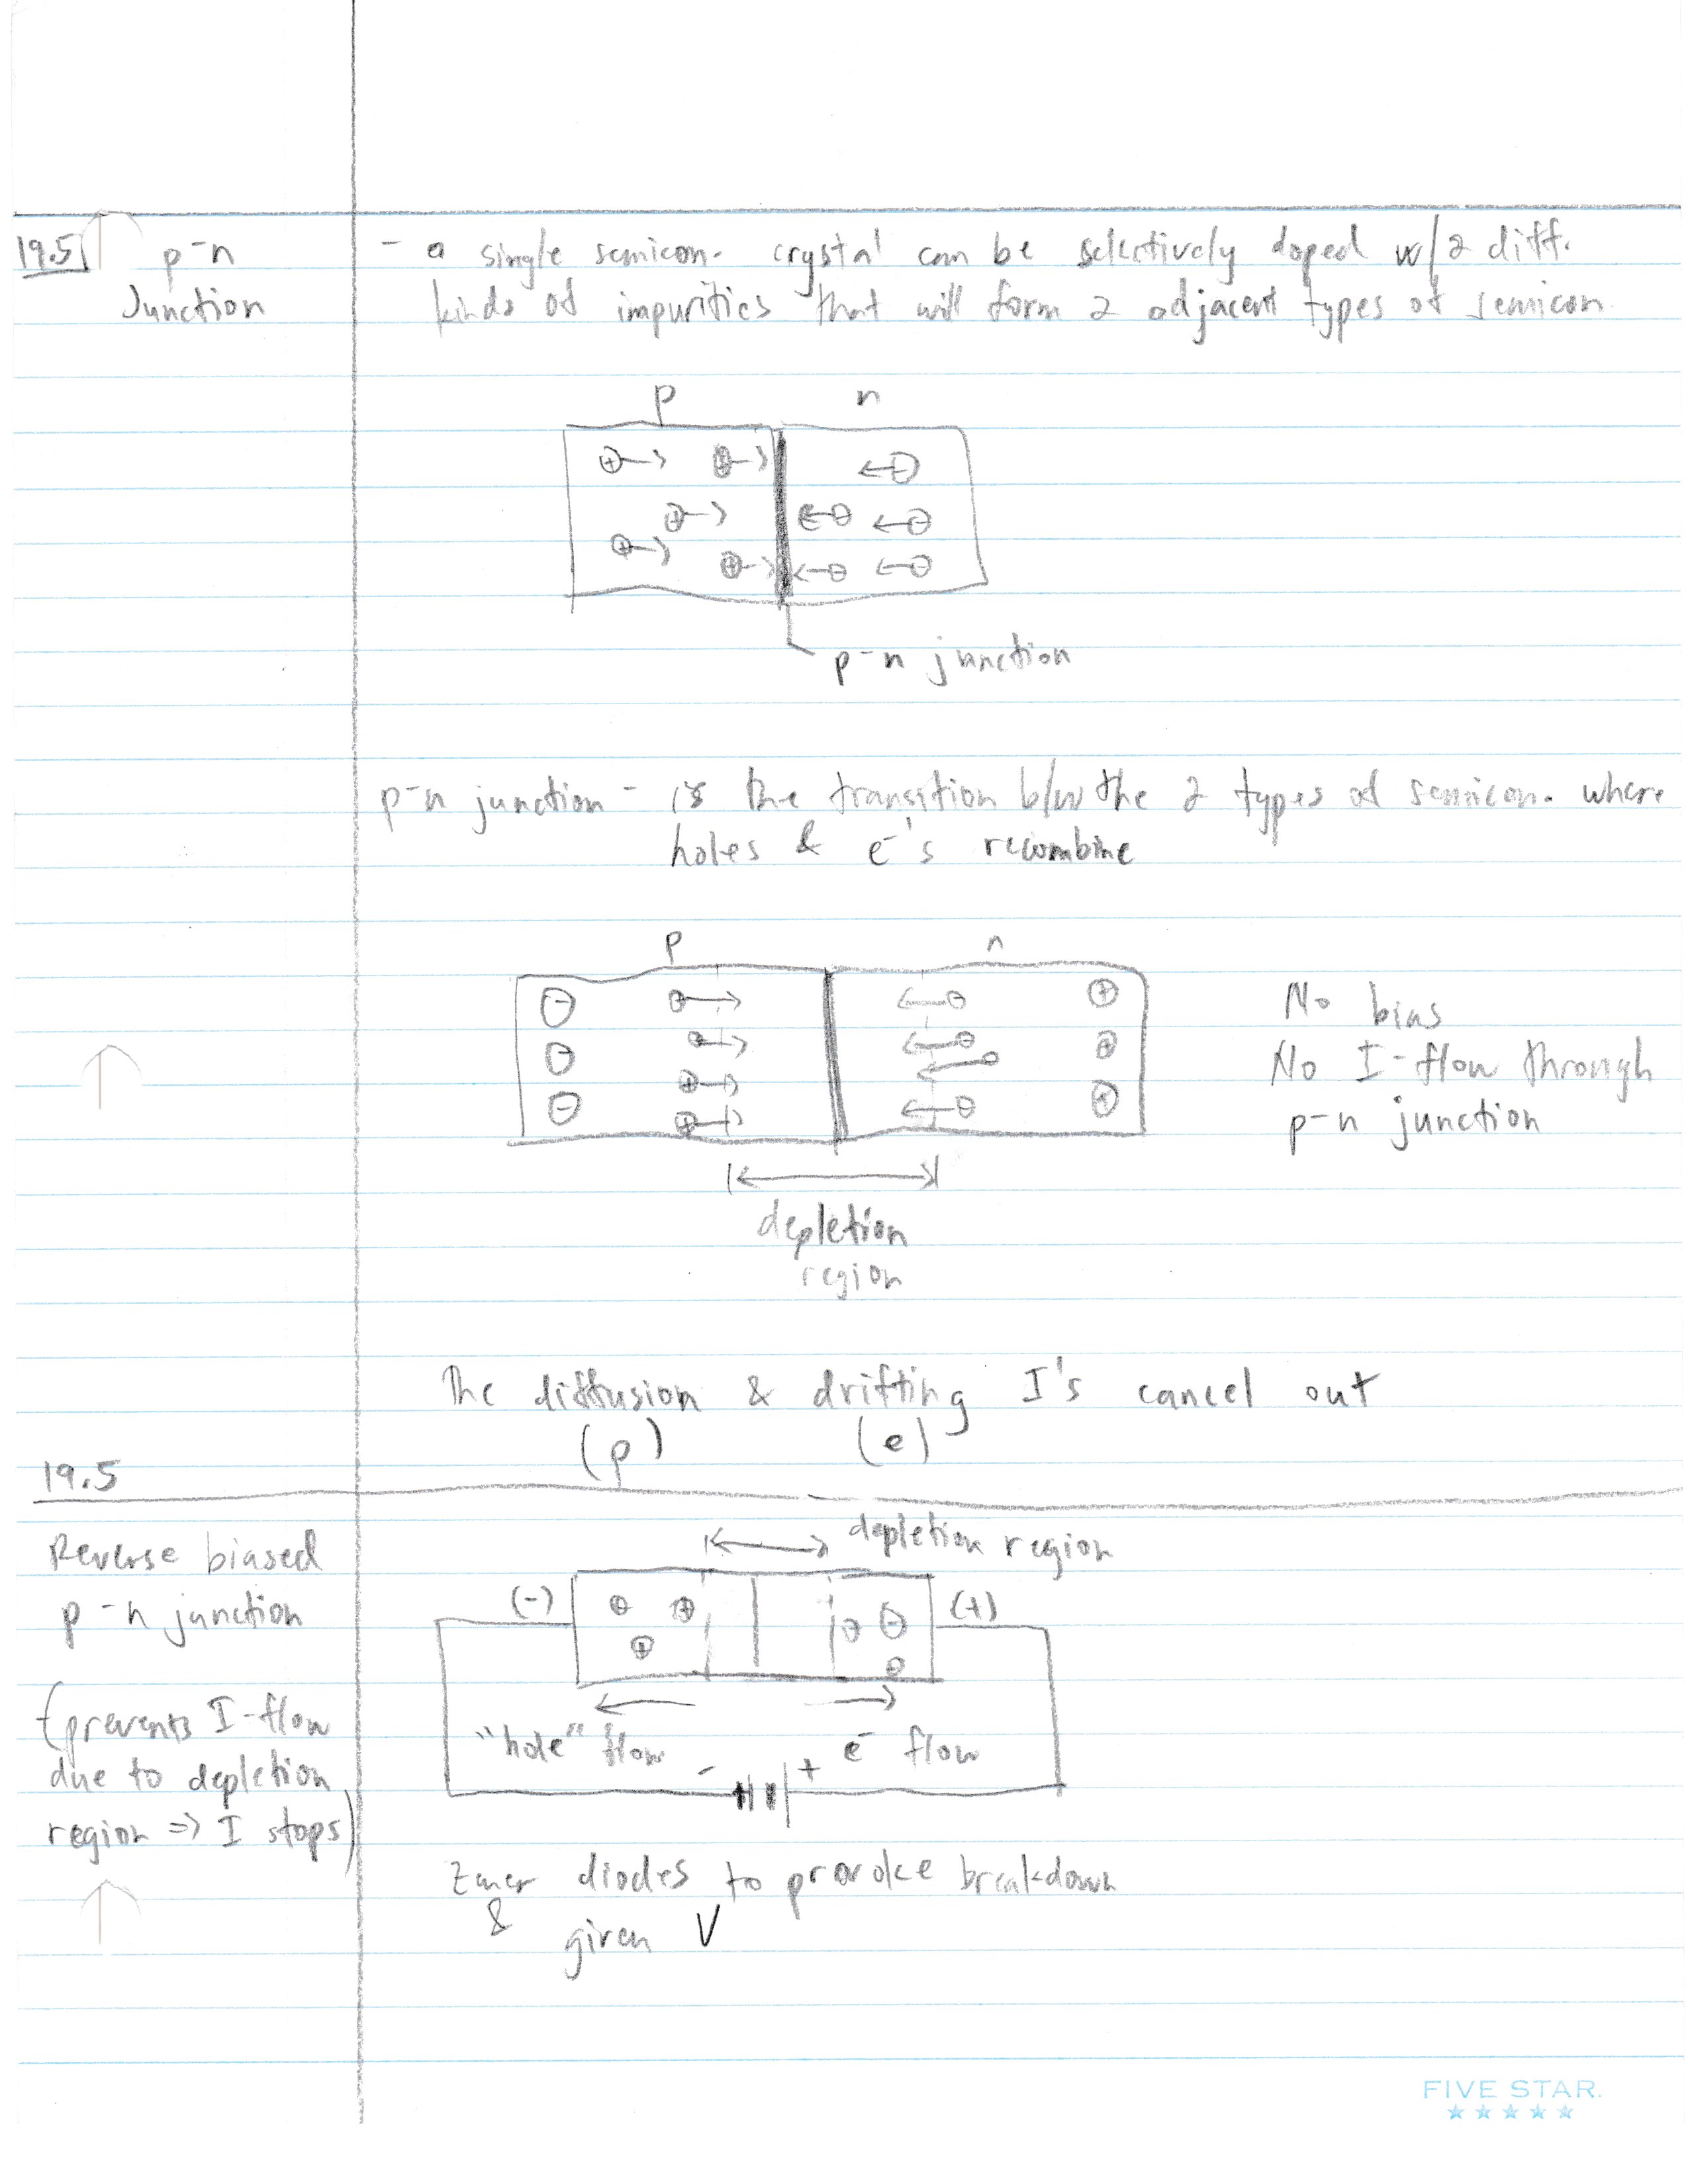 19.5 p-n
Junction
- a single semicon. crystal can be selectively doped w/ 2 diff.
kinds of impurities that will form 2 adjacent types of semicon.
p n
p-n junction
p-n junction - is the transition b/w the 2 types of semicon. where
holes & e⁻'s recombine
p n
No bias
No I-flow through
p-n junction
depletion
region
The diffusion & drifting I's cancel out
(p) (e)
19.5
Reverse biased
p-n junction
(prevents I-flow
due to depletion
region => I stops)
depletion region
(-) (+)
"hole" flow e⁻ flow
- +
Zener diodes to provoke breakdown
& given V
FIVE STAR.